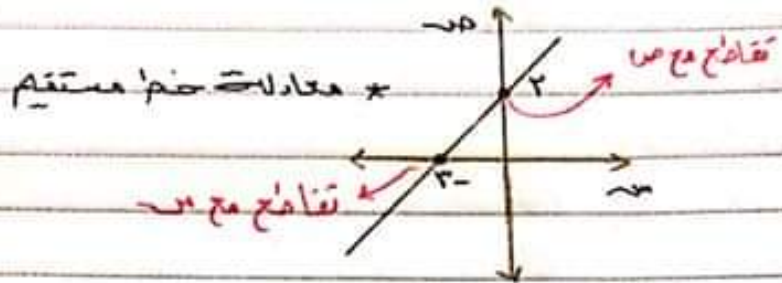 ص
تقاطع مع ص
٢
* معادلة خط مستقيم
-٣
س
تقاطع مع س